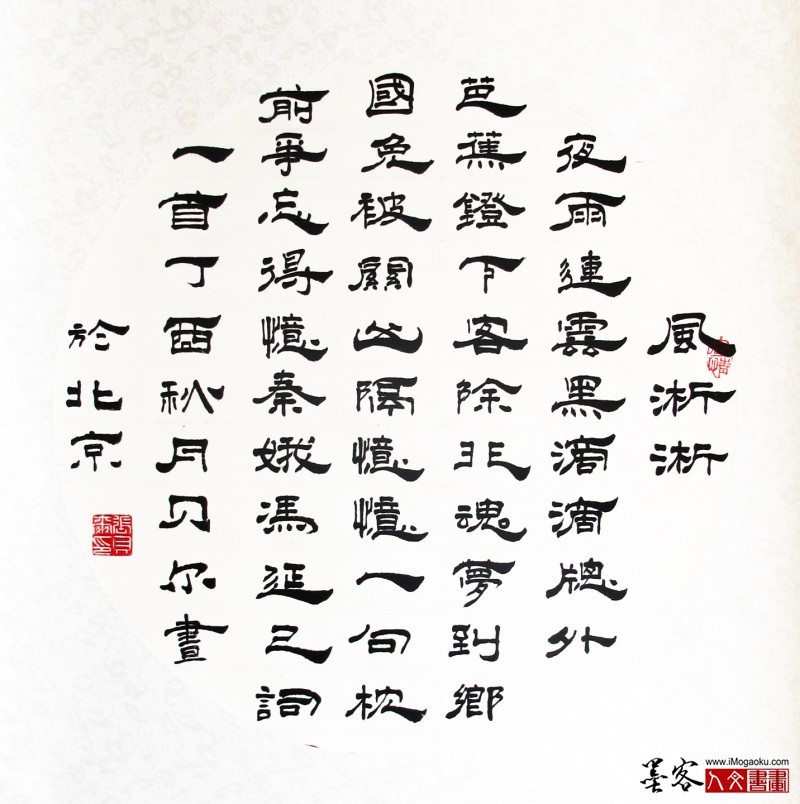 風淅淅
夜雨連雲黑滴滴牕外
芭蕉鐙下客除非魂夢到鄉
國免被關山隔憶憶一句枕
前爭忘得憶秦娥馮延巳詞
一首丁酉秋月贝尔書
於北京
墨客
www.iMogaoku.com
人文書畫